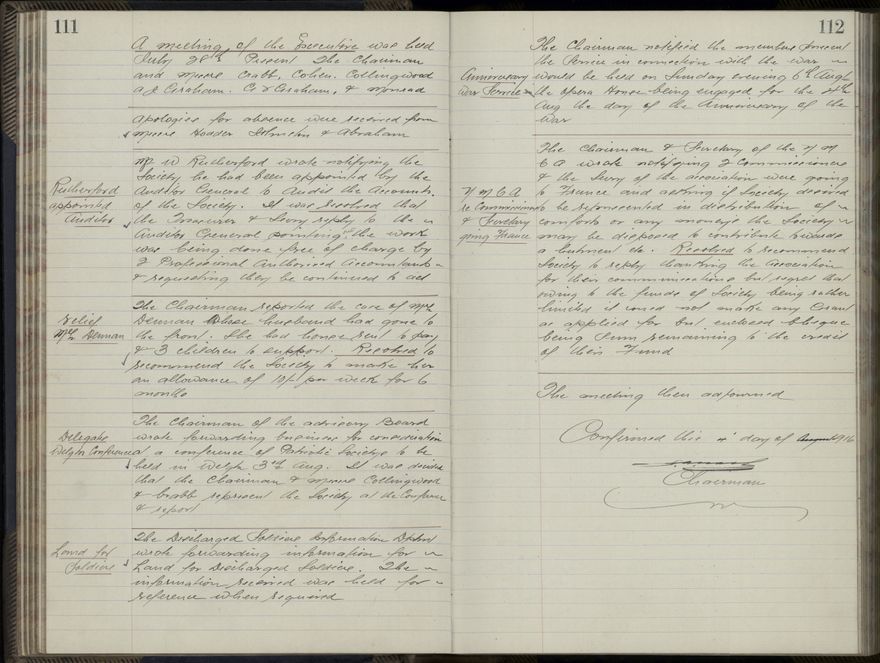 111
A meeting of the Executive was held
July 28th Present The Chairman
and Messrs Crabb, Cohen, Collingwood
Graham. Graham, &
Apologies for absence were received from
Messrs Hodder Johnston & Abraham
Rutherford
appointed
Auditor
Mr W Rutherford wrote notifying the
Society he had been appointed by the
Auditor General to Audit the Accounts
of the Society. It was Resolved that
the Treasurer & Secy reply to the
Auditor General pointing out the work
was being done free of charge by
2 Professional Authorised Accountants
& requesting they be continued to act
Relief
Mrs Denman
The Chairman reported the case of Mrs
Denman whose husband had gone to
the front. She had house rent to pay
& 3 children to support. Resolved to
recommend the Society to make her
an allowance of per week for 6
months
Delegate
Welgtn Conference
The Chairman of the Advisory Board
wrote forwarding business for consideration
at a conference of Patriotic Societys to be
held in Welgtn 3rd Aug. It was decided
that the Chairman & Messrs Collingwood
& Crabb represent the Society at the Conference
& report
Land for
Soldiers
The Discharged Soldiers Information Deptmt
wrote forwarding information for
Land for Discharged Soldiers. The
information received was held for
reference when required
112
Anniversary
War Service
The Chairman notified the members present
the Service in connection with the war
would be held on Sunday evening 6th Augt
the Opera House being engaged for the
Aug the day of the Anniversary of the
War
Y M C A
re Commissioners
& Secretary
going France
The Chairman & Secretary of the Y M
C A wrote notifying 2 Commissioners
& the Secy of the association were going
to France and asking if Society desired
to be represented in distribution of
comforts or any moneys the Society
may be disposed to contribute towards
a hutment etc. Resolved to recommend
Society to reply thanking the Association
for their communications but regret that
owing to the funds of Society being rather
limited it could not make any Grant
as applied for but enclosed cheque
being sum remaining to the credit
of their Fund
The meeting then adjourned
Confirmed this day of August 1916
Chairman